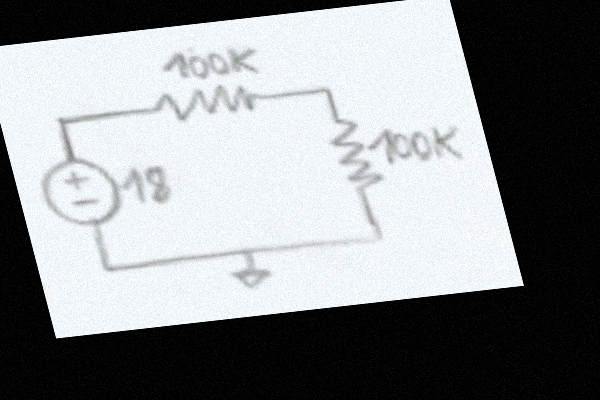 100K
100K
+
18
−